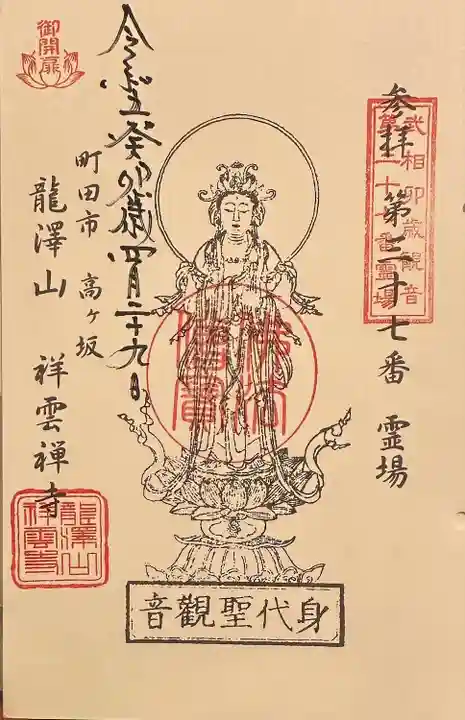 武相卯歳觀音
参拝 第二十七番 霊場
御開扉
佛法僧寶
令和五癸卯歳四月二十九日
町田市 高ヶ坂
龍澤山 祥雲禅寺
龍澤山
祥雲寺
身代聖觀音